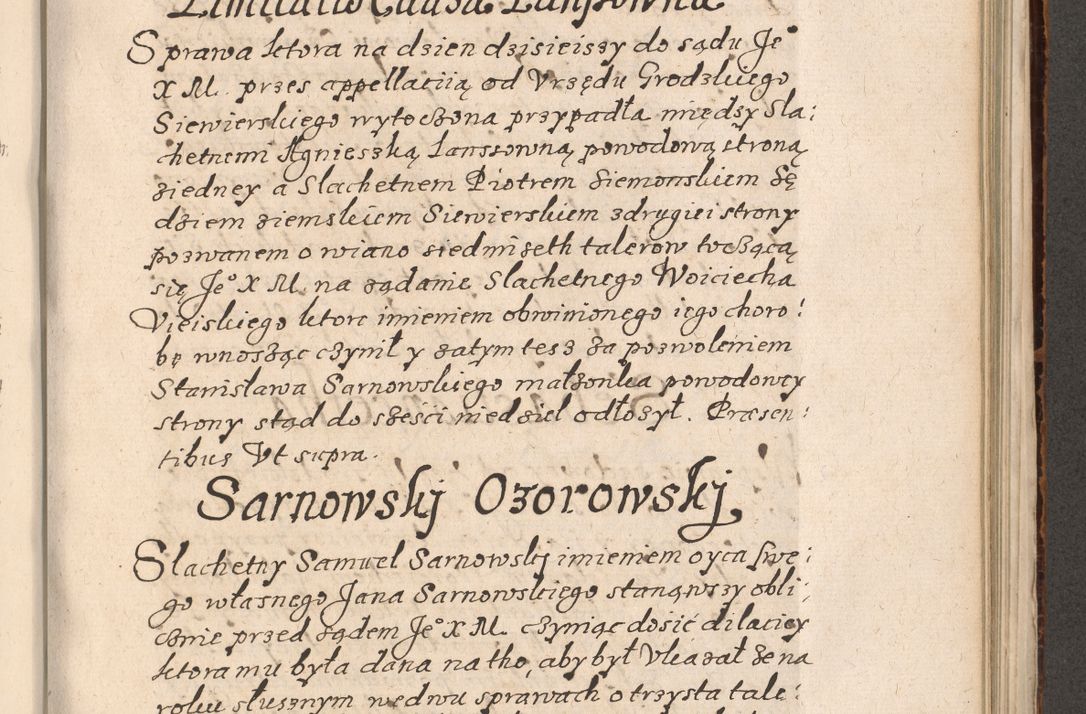 Limitatio Causæ Lanszowna
Sprawa ktora na dzien dzisieiszy do sądu Je°
X M. przes appellatiią od Vrzędu Grodzkiego
Siewierskiego wytoczona przypadła między Sla:
chetnemi Agnieszką Lanssowną powodową stroną
ziedney a Slachetnem Piotrem Siemonskiem Sę
dziem ziemskiem Siewierskiem zdrugiei strony
pozwanem o wiano siedmiseth talerow toczącą
się Je° X M. na ządanie Slachetnego Woiciecha
Vieiskiego ktore imieniem obwinionego iego choro:
bę wnosząc czynił y zatym tesz za pozwoleniem
Stanisława Sarnowskiego małzonka powodowey
strony stąd do szesci niedziel odłozył. Præsen:
tibus Vt supra.
Sarnowskj Ozorowskj
Slachetny Samuel Sarnowskj imieniem oyca swe:
go własnego Jana Sarnowskiego stanąwszy obli:
cznie przed sądem Je° X M. czyniąc dosić dilaciey
ktora mu była dana na tho, aby był Vkazał ze na
roku słusznym wedwu sprawach o trzysta tale: